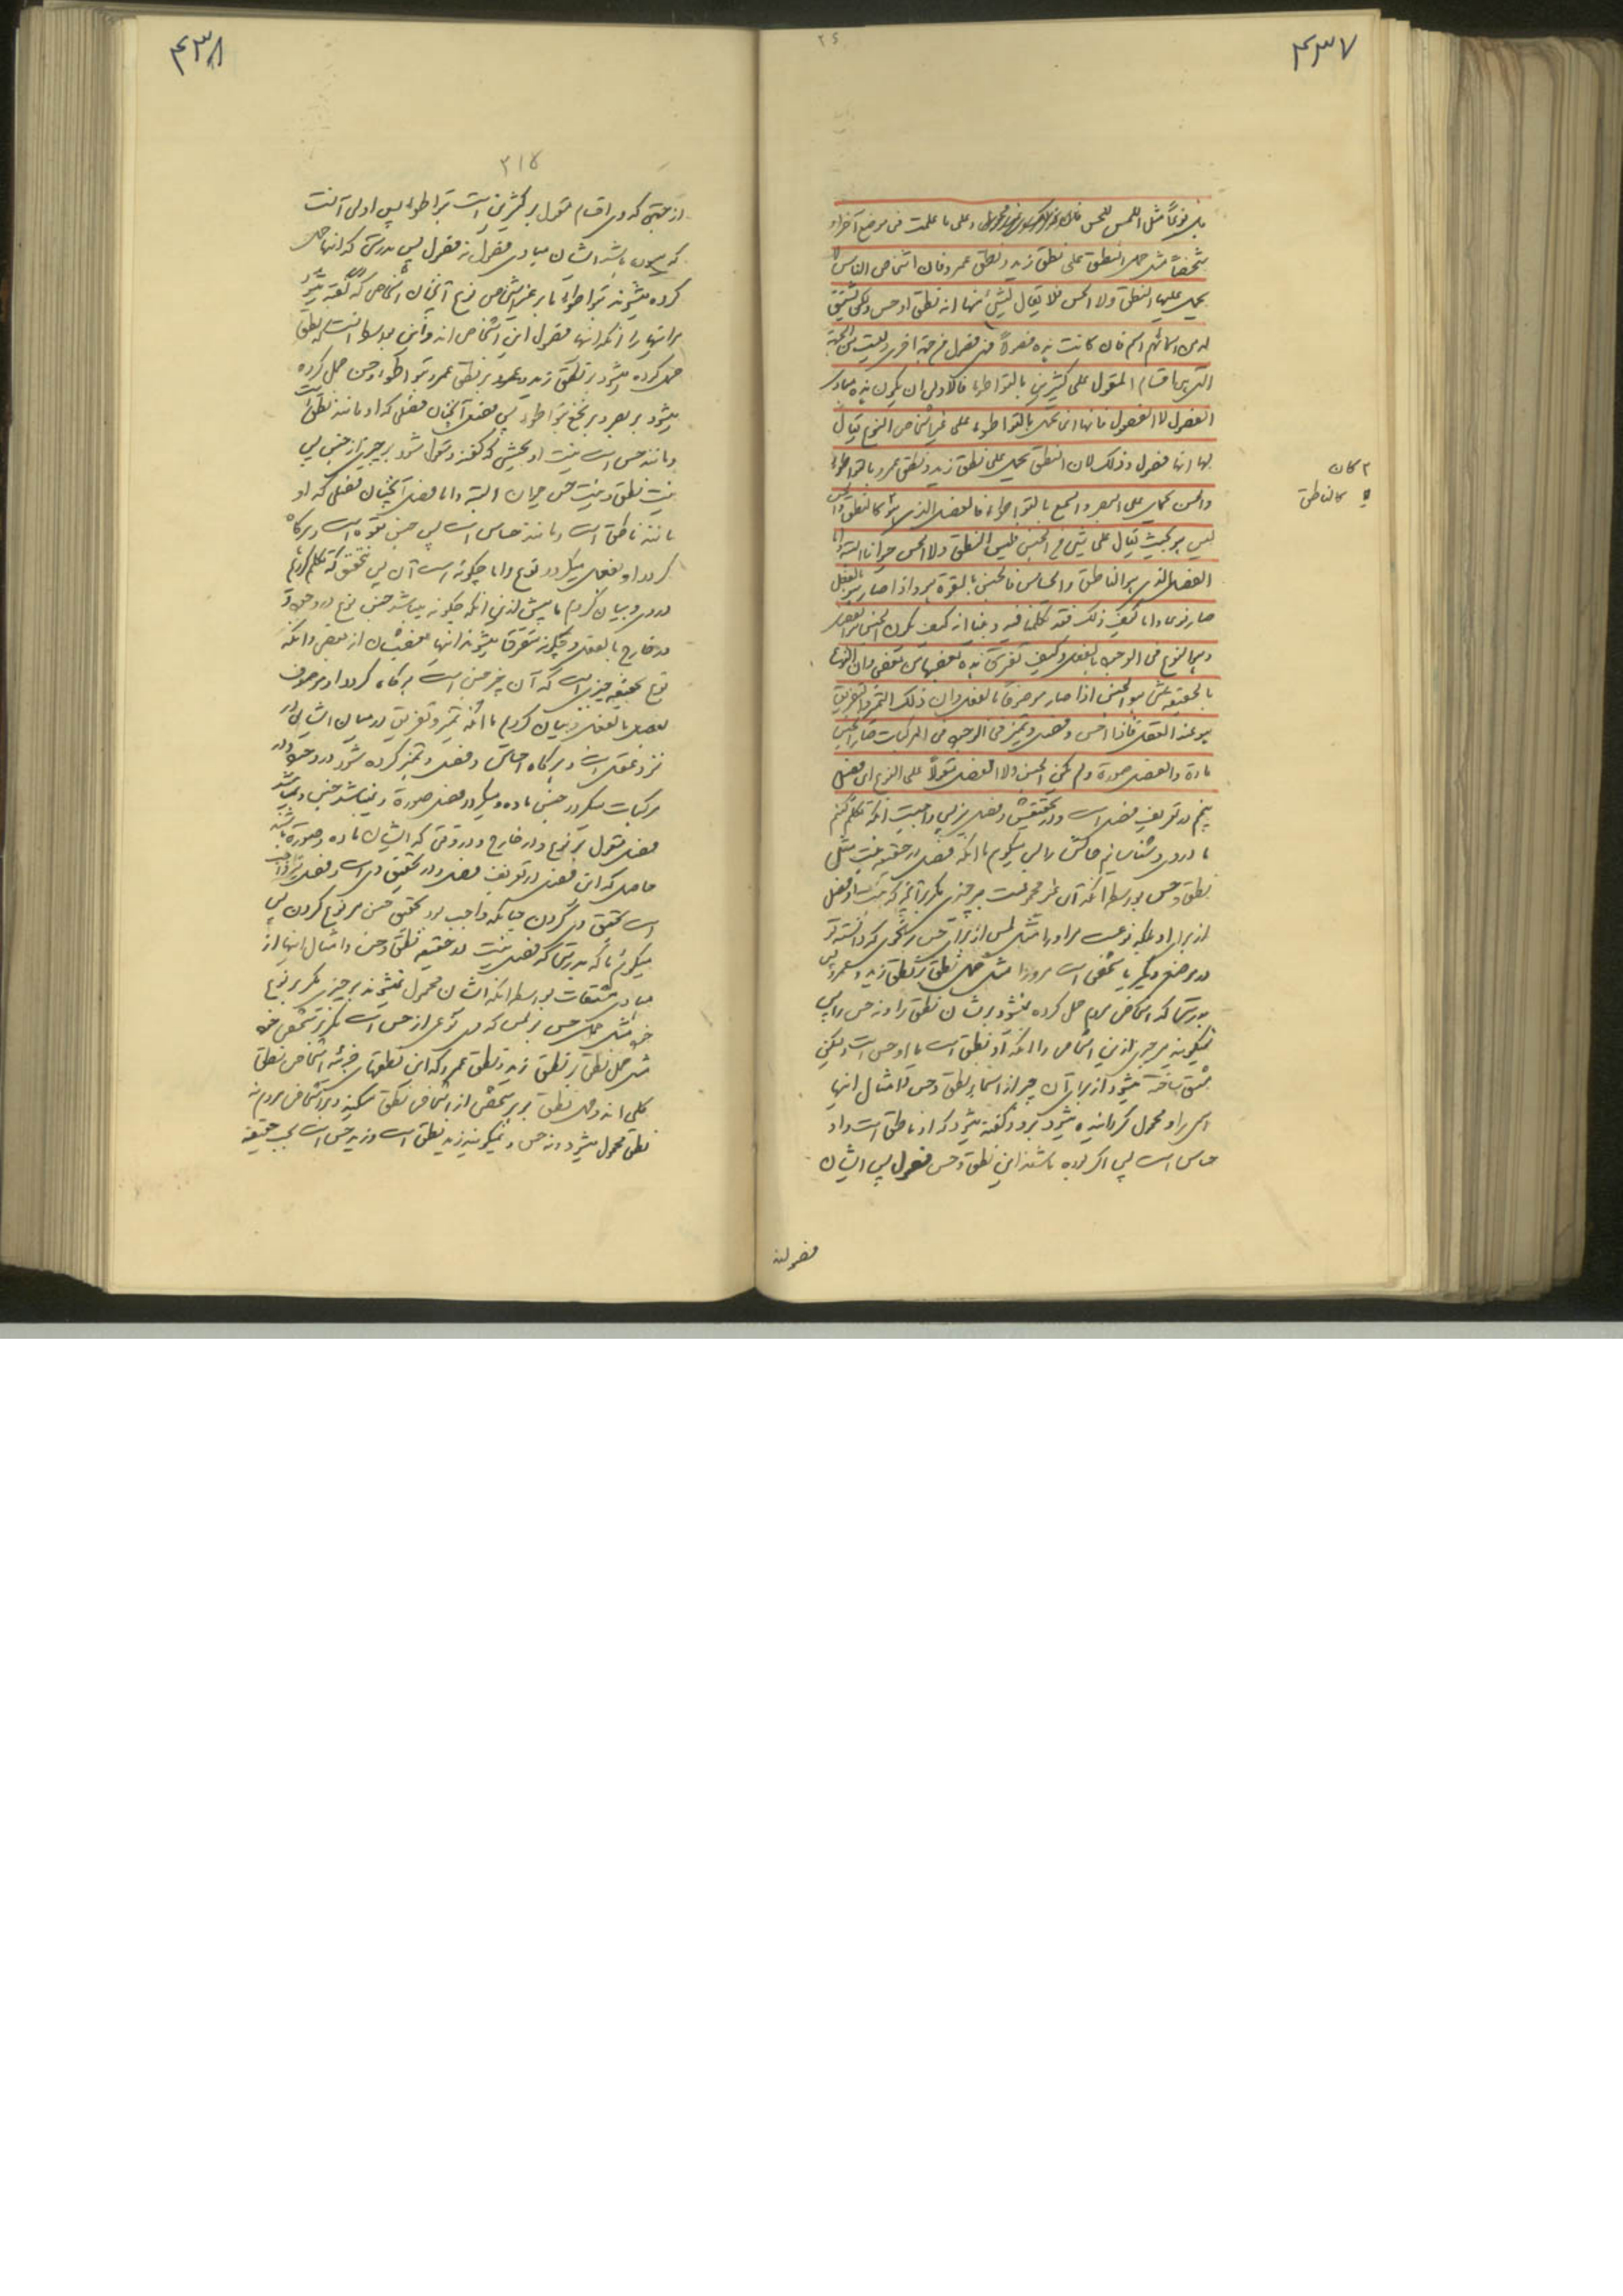 ۴۳۷
بل نوعاً مثل اللمس للحس و علی ما علمت فی موضع آخر او
شخصاً مثل حمل النطق علی نطق زید و نطق عمرو فان اشخاص الناس لا
یحمل علیها النطق ولا الحس فلا یقال لشیء منها انه نطق او حس ولکن یشتق
له من اسمائهم اسم فان کانت هذه فصولاً فهی فصول من جهة اخری ولیست من الجهة
التی هی اقسام المقول علی کثیرین بالتواطؤ فالاولی ان یکون هذه مبادی
الفصول لا الفصول فانها انما تحمل بالتواطؤ علی غیر اشخاص النوع یقال
لها انها فصول و ذلک لان النطق یحمل علی نطق زید و نطق عمرو بالتواطؤ
والحس یحمل علی البصر والسمع بالتواطؤ فالفصل الذی هو کالنطق والحس
لیس هو بحیث یقال علی شیء من الجنس فلیس النطق ولا الحس حیوانا البتة و اما
الفصل الذی هو الناطق والحساس فالجنس بالقوة هو و اذا صار هو بالفعل
صار نوعا و اما کیف ذلک فقد تکلمنا فیه و بینا انه کیف یکون الجنس هو الفصل
وهو النوع فی الوجود بالفعل و کیف تفترق هذه بعضها من بعض وان النوع
بالحقیقة شیء هو الجنس اذا صار موصوفاً بالفعل وان ذلک التمیز والتفریق
هو عند العقل فاذا احس و فصل و تمیز فی الوجود فی المرکبات صار الجنس
مادة والفصل صورة ولم یکن الجنس ولا الفصل مقولاً علی النوع این فصل
پنجم در تعریف فصل است و در تحقیقش و فصل نیز پس واجبست آنکه تکلم کنیم
ما در وی و بشناسانیم حالش را پس میگوییم ما آنکه فصل در حقیقت نیست مثل
نطق و حس بواسطه آنکه آن غیر محمولست بر چیزی مگر بر آنچه که نیست او فصل
از برای او بلکه نوعست مر او را مثل لمس از برای حس بر نحوی که دانسته تو
در موضع دیگر یا شخصی است مر او را مثل حمل نطق بر نطق زید و عمرو پس
بدرستی که اشخاص مردم حمل کرده نمیشود بر ایشان نطق را و نه حس را پس
نمیگویند بر چیزی از این اشخاص را آنکه او نطق است یا او حس است ولیکن
مشتق ساخته میشود از برای آن چیز از اسماء نطق و حس و امثال اینها
اسمی را و محمول گردانیده میشود برو و گفته میشود که او ناطق است و او
حساس است پس اگر بوده باشند این نطق و حس فصول پس ایشان
فصولند
۲ کان
کالناطق
۴۳۸
۳۱۷
از جهتی که وی اقسام مقول بر کثیرین است بتواطؤ پس اولی آنست
که بوده باشد ایشان مبادی فصول نه فصول پس بدرستی که اینها حمل
کرده میشوند بتواطؤ بر غیر اشخاص نوع آنچنان اشخاص که گفته میشود
مر اینها را آنکه اینها فصول این اشخاص اند و این بواسطه آنست که نطق
حمل کرده میشود بر نطق زید و بر نطق عمرو بتواطؤ و حس حمل کرده
میشود بر بصر و بر سمع بتواطؤ پس فصل آنچنان فصلی که او مانند نطق است
و مانند حس است نیست او بحیثی که گفته و مقول شود بر چیزی از جنس پس
نیست نطق و نیست حس حیوان البته و اما فصل آنچنان فصلی که او
مانند ناطق است و مانند حساس است پس جنس بقوه است و هرگاه
گردد او بفعل میگردد نوع و اما چگونه است آن پس بتحقیق که تکلم کردیم
در وی و بیان کردیم ما پیش ازین آنکه چگونه میباشد جنس نوع در وجود
در خارج بالفعل و چگونه متفرق میشوند اینها بعضیشان از بعض و آنکه
نوع بحقیقت چیزیست که آن چیز جنس است هرگاه گردد او موصوف
بفصل بالفعل و بیان کردیم ما آنکه تمیز و تفریق در میان ایشان در
نزد عقل است و هرگاه احساس و فصل و تمیز کرده شود در وجود در
مرکبات میگردد جنس ماده و میگردد فصل صورة و نمیباشد جنس و نمیباشد
فصل مقول بر نوع و در خارج و در وقتی که ایشان ماده و صورة باشند
حاصل که این فصل در تعریف فصل و در تحقیق وی است و فصل نیز واجب
است تحقیق وی کردن چنانکه واجب بود تحقیق جنس و نوع کردن پس
میگوئیم ما که بدرستی که فصل نیست در حقیقت نطق و حس و امثال اینها از
مبادی مشتقات بواسطه آنکه ایشان محمول نمیشوند بر چیزی مگر بر نوع
خود مثل حمل حس بر لمس که نوعی از حس است مگر بر شخص خود
مثل حمل نطق بر نطق زید و نطق عمرو که این نطقهای جزئیه اشخاص نطق
کلی اند و حمل نطق بر هر شخص از اشخاص نطق میکنند و بر اشخاص مردم نه
نطق محمول میشود و نه حس و نمیگویند زید نطق است و زید حس است بحسب حقیقت